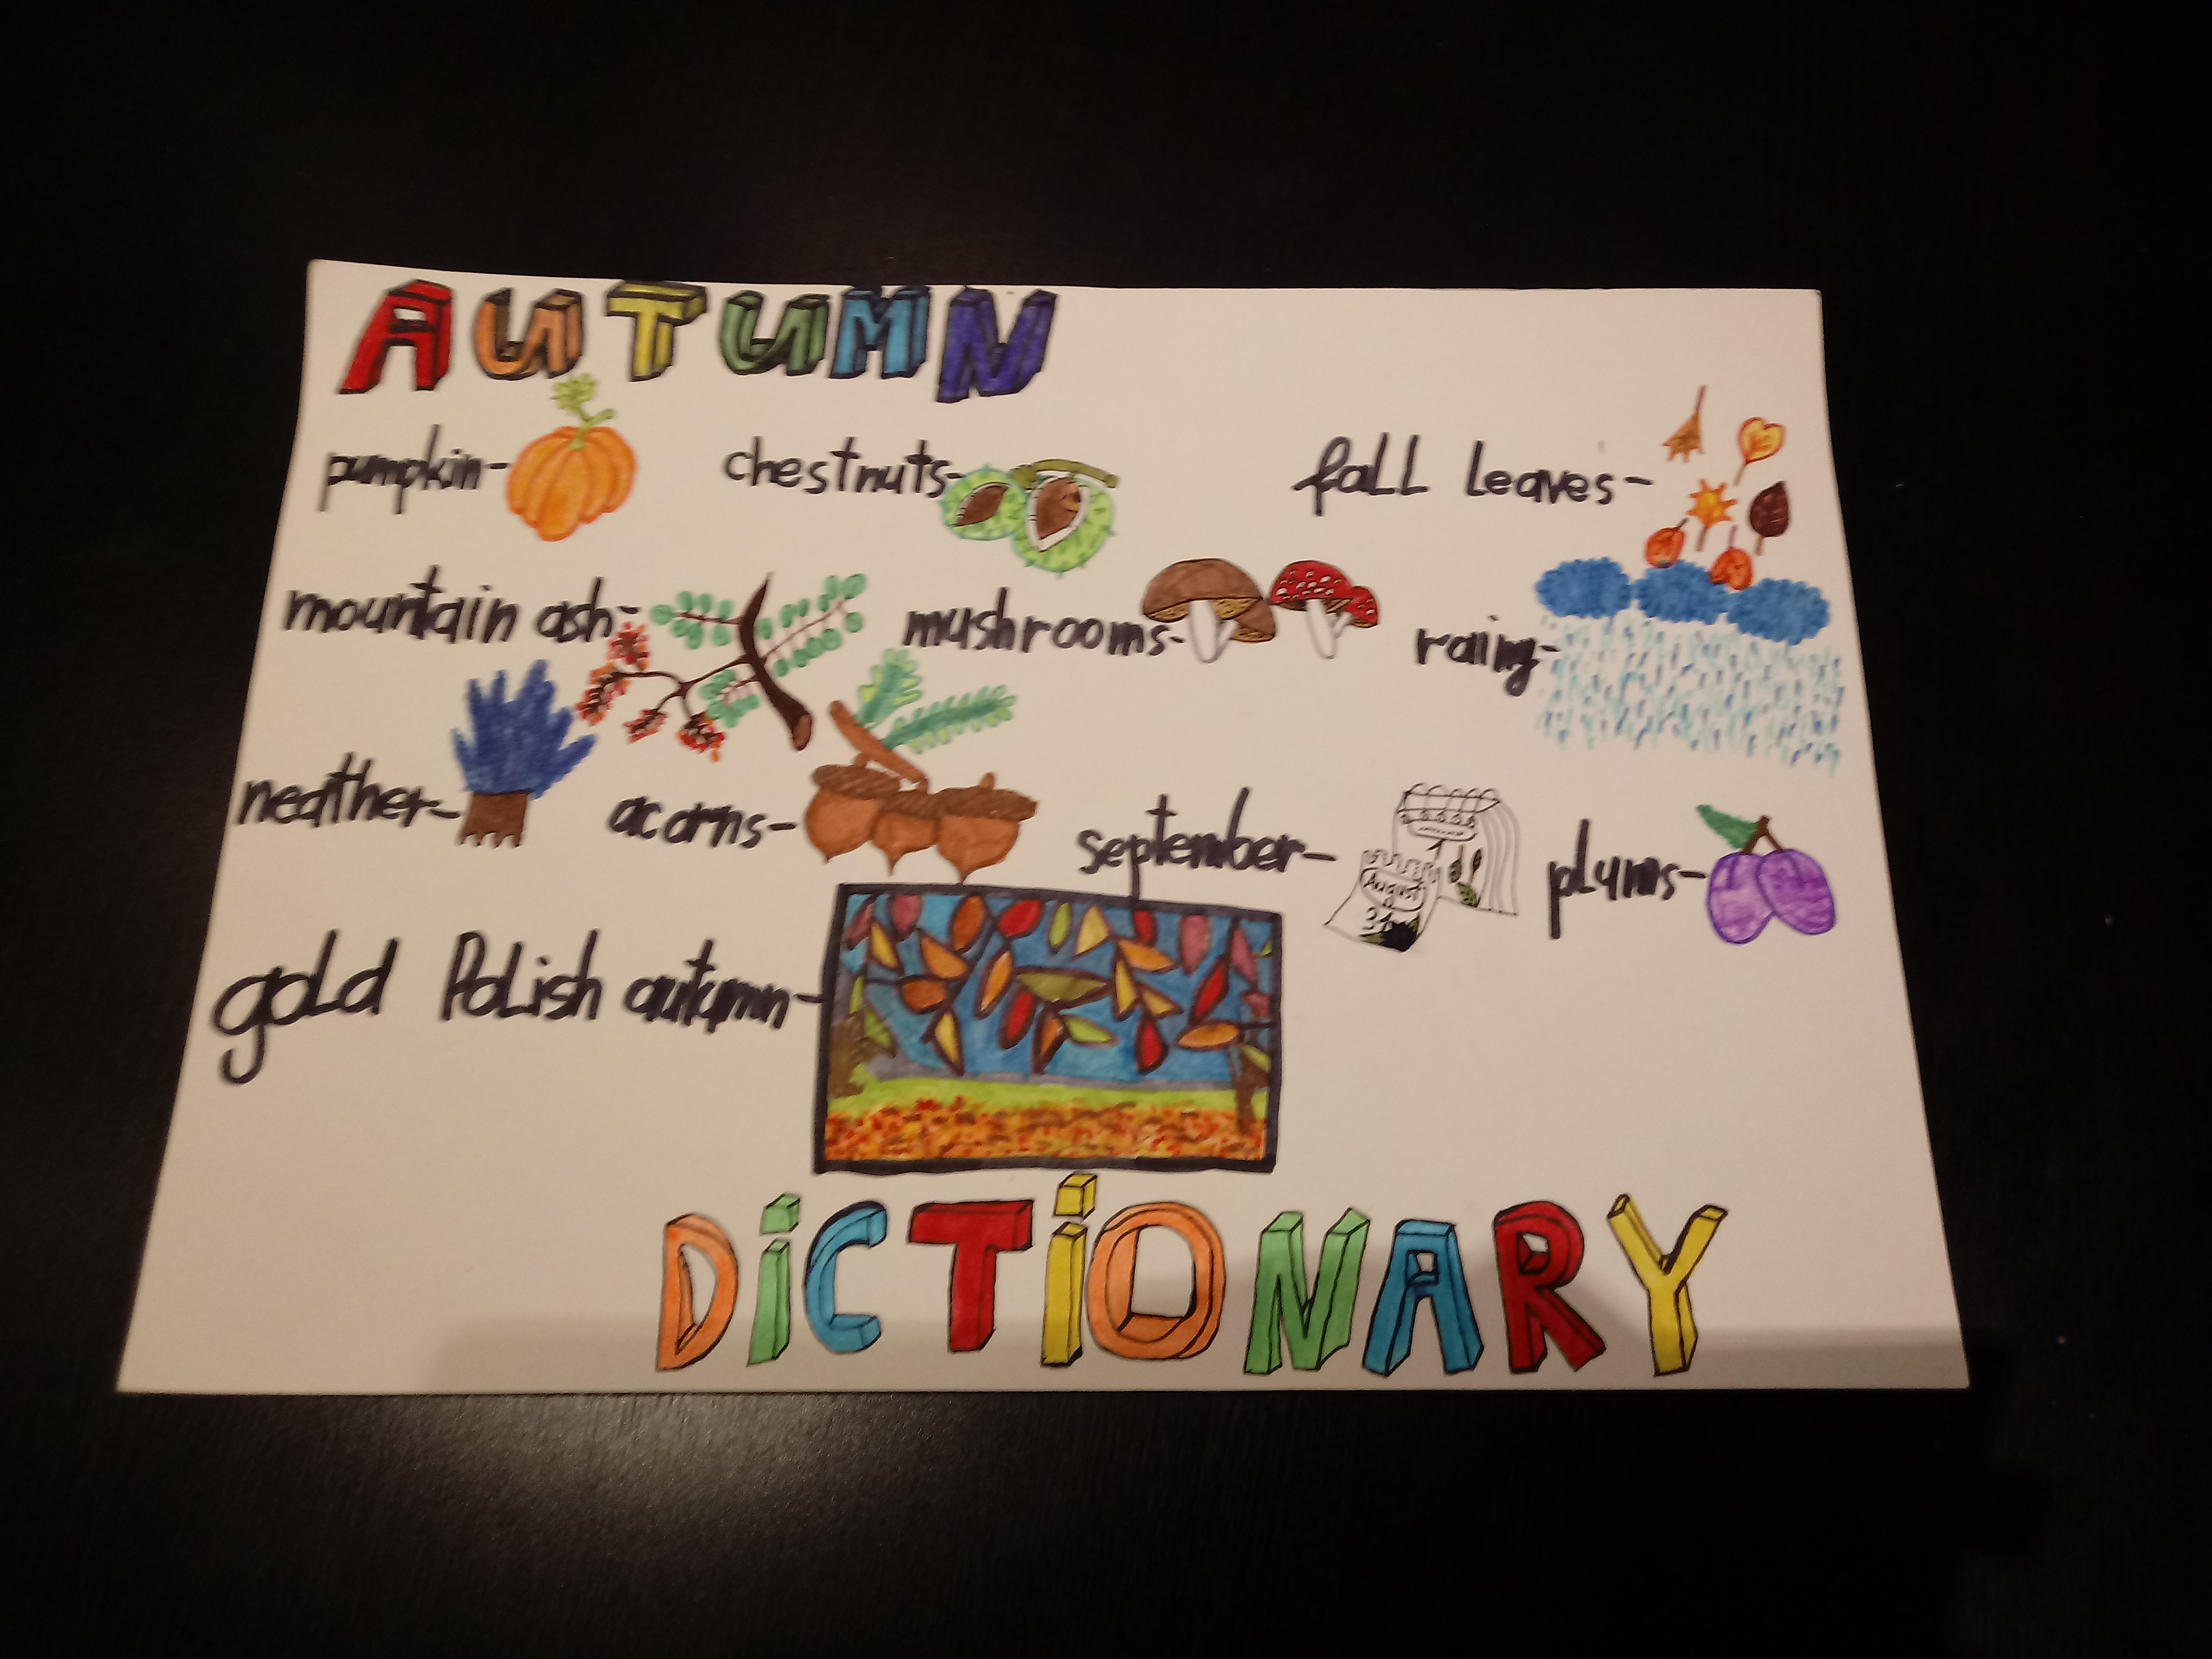 AUTUMN
pumpkin-
chestnuts-
fall leaves-
mountain ash-
mushrooms-
rainy-
neather-
acorns-
september-
August
plums-
gold Polish autumn-
DiCTiONARY